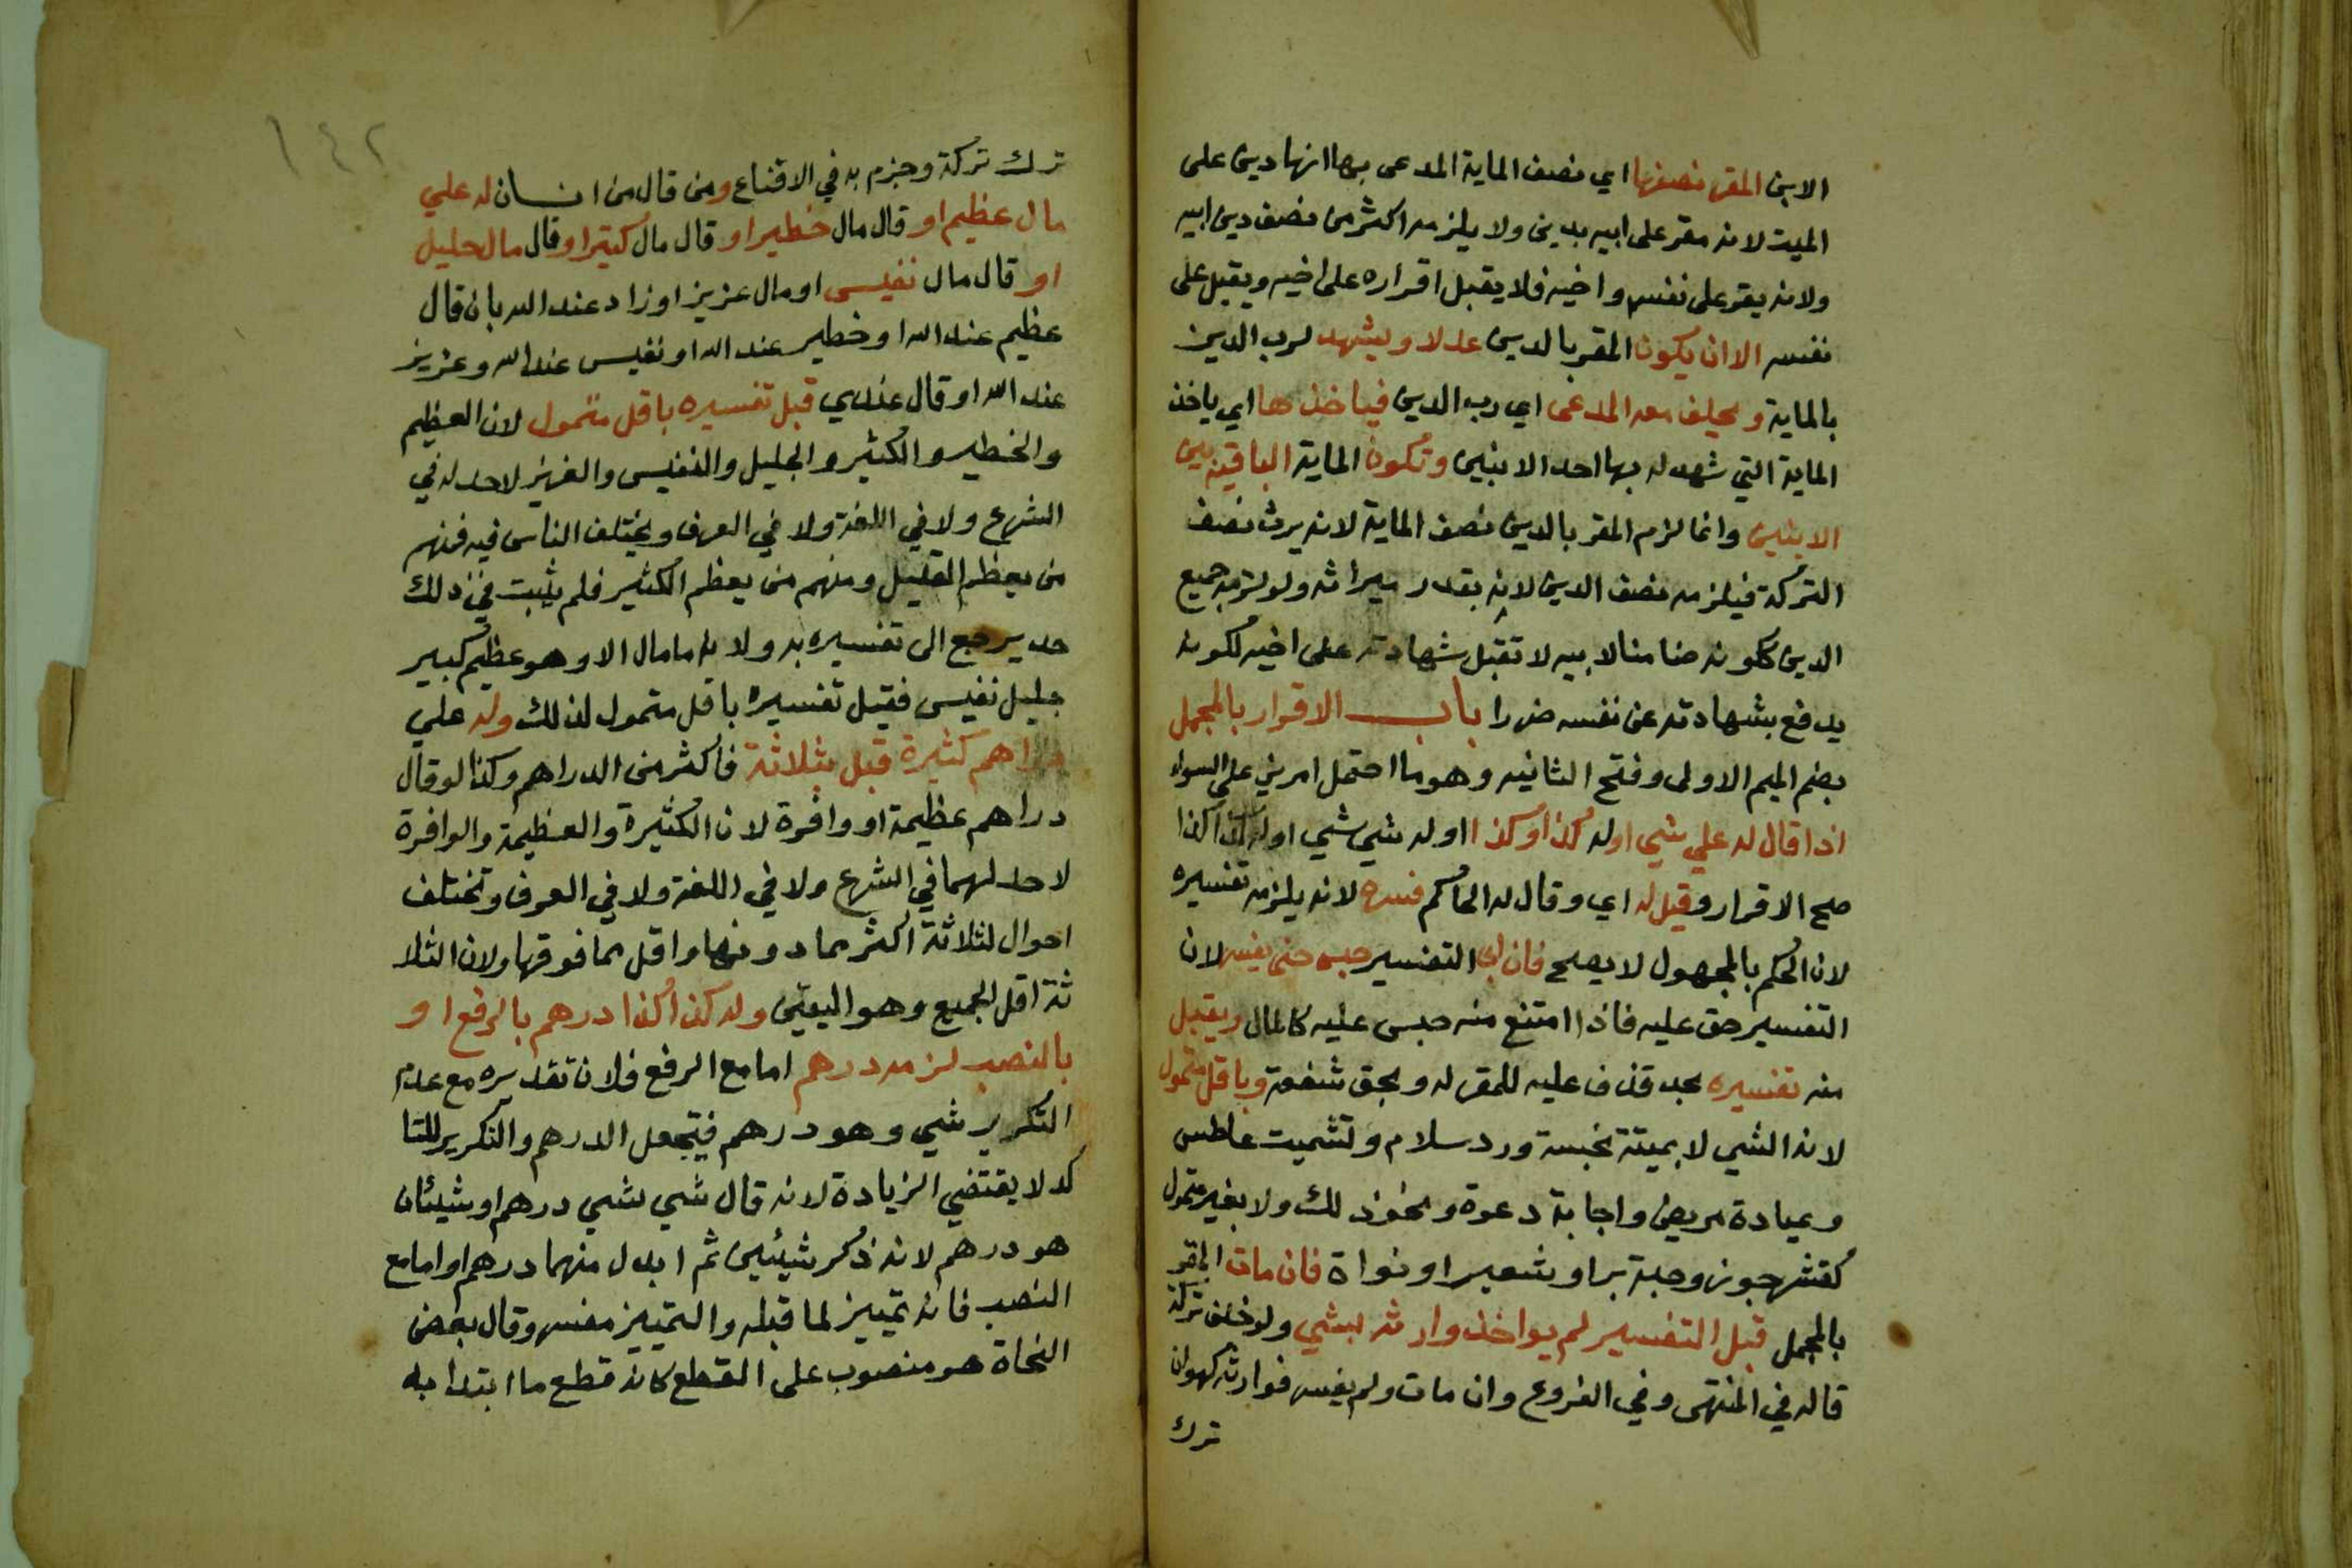 الابن المقر نصفها اي نصف الماية المدعى بها انها دين على
الميت لانه مقر على ابيه بدين ولا يلزمه اكثر من نصف دين ابيه
ولانه يقر على نفسه واخيه فلا يقبل اقراره على اخيه ويقبل على
نفسه الا ان يكون المقر بالدين عدلا ويشهد لرب الدين
بالماية ويحلف معه المدعى اي رب الدين فياخذها اي ياخذ
الماية التي شهد له بها احد الابنين وتكون الماية الباقية بين
الابنين وانما لزم المقر بالدين نصف الماية لانه يرث نصف
التركة فيلزمه نصف الدين لانه بقدر ميراثه ولو لزمه جميع
الدين ككونه ضامنا لابيه لا تقبل شهادته على اخيه لكونه
يدفع بشهادته عن نفسه ضررا باب الاقرار بالمجمل
بضم الميم الاولى وفتح الثانيه وهو ما احتمل امرين على السواء
اذا قال له علي شي او له كذا وكذا او له شي شي او له كذا كذا
صح الاقرار وقيل له اي وقال له الحاكم فسره لانه يلزمه تفسيره
لان الحكم بالمجهول لا يصح فان ابى التفسير حبس حتى يفسر لان
التفسير حق عليه فاذا امتنع منه حبس عليه كالمال ويقبل
منه تفسيره بحد قذف عليه للمقر له وبحق شفعة وباقل متمول
لانه الشي لا بميتة نجسة ورد سلام وتشميت عاطس
وعيادة مريض واجابة دعوة ونحو ذلك ولا بغير متمول
كقشر جوز وحبة بر او شعير او نواة فان مات المقر
بالمجمل قبل التفسير لم يواخذ وارثه بشي ولو خلف تركة
قاله في المنتهى وفي الفروع وان مات ولم يفسر فوارثه كهو ان
ترك
١٤٢
ترك تركة وجزم به في الاقناع ومن قال من انسان له علي
مال عظيم او قال مال خطير او قال مال كثير او قال مال جليل
او قال مال نفيس او مال عزيز او زاد عند الله بان قال
عظيم عند الله او خطير عند الله او نفيس عند الله وعزيز
عند الله او قال عندي قبل تفسيره باقل متمول لان العظيم
والخطير والكثير والجليل والنفيس والعزيز لا حد له في
الشرع ولا في اللغة ولا في العرف ويختلف الناس فيه فمنهم
من يعظم القليل ومنهم من يعظم الكثير فلم يثبت في ذلك
حد يرجع الى تفسيره به ولانه ما مال الا وهو عظيم كبير
جليل نفيس فقبل تفسيره باقل متمول لذلك وله علي
دراهم كثيرة قبل بثلاثة فاكثر من الدراهم وكذا لو قال
دراهم عظيمة او وافرة لان الكثيرة والعظيمة والوافرة
لا حد لهما في الشرع ولا في اللغة ولا في العرف وتختلف
احوال لثلاثة اكثر مما دونها واقل مما فوقها ولان الثلا
ثة اقل الجميع وهو اليقين وله كذا كذا درهم بالرفع او
بالنصب لزمه درهم اما مع الرفع فلان تقديره مع عدم
التكرير شي وهو درهم فيجعل الدرهم والتكرير للتا
كد لا يقتضي الزيادة لانه قال شي شي درهم او شيئان
هو درهم لانه ذكر شيئين ثم ابدل منهما درهم او اما مع
النصب فانه تمييز لما قبله والتمييز مفسر وقال بعض
النحاة هو منصوب على القطع كانه قطع ما ابتدا به